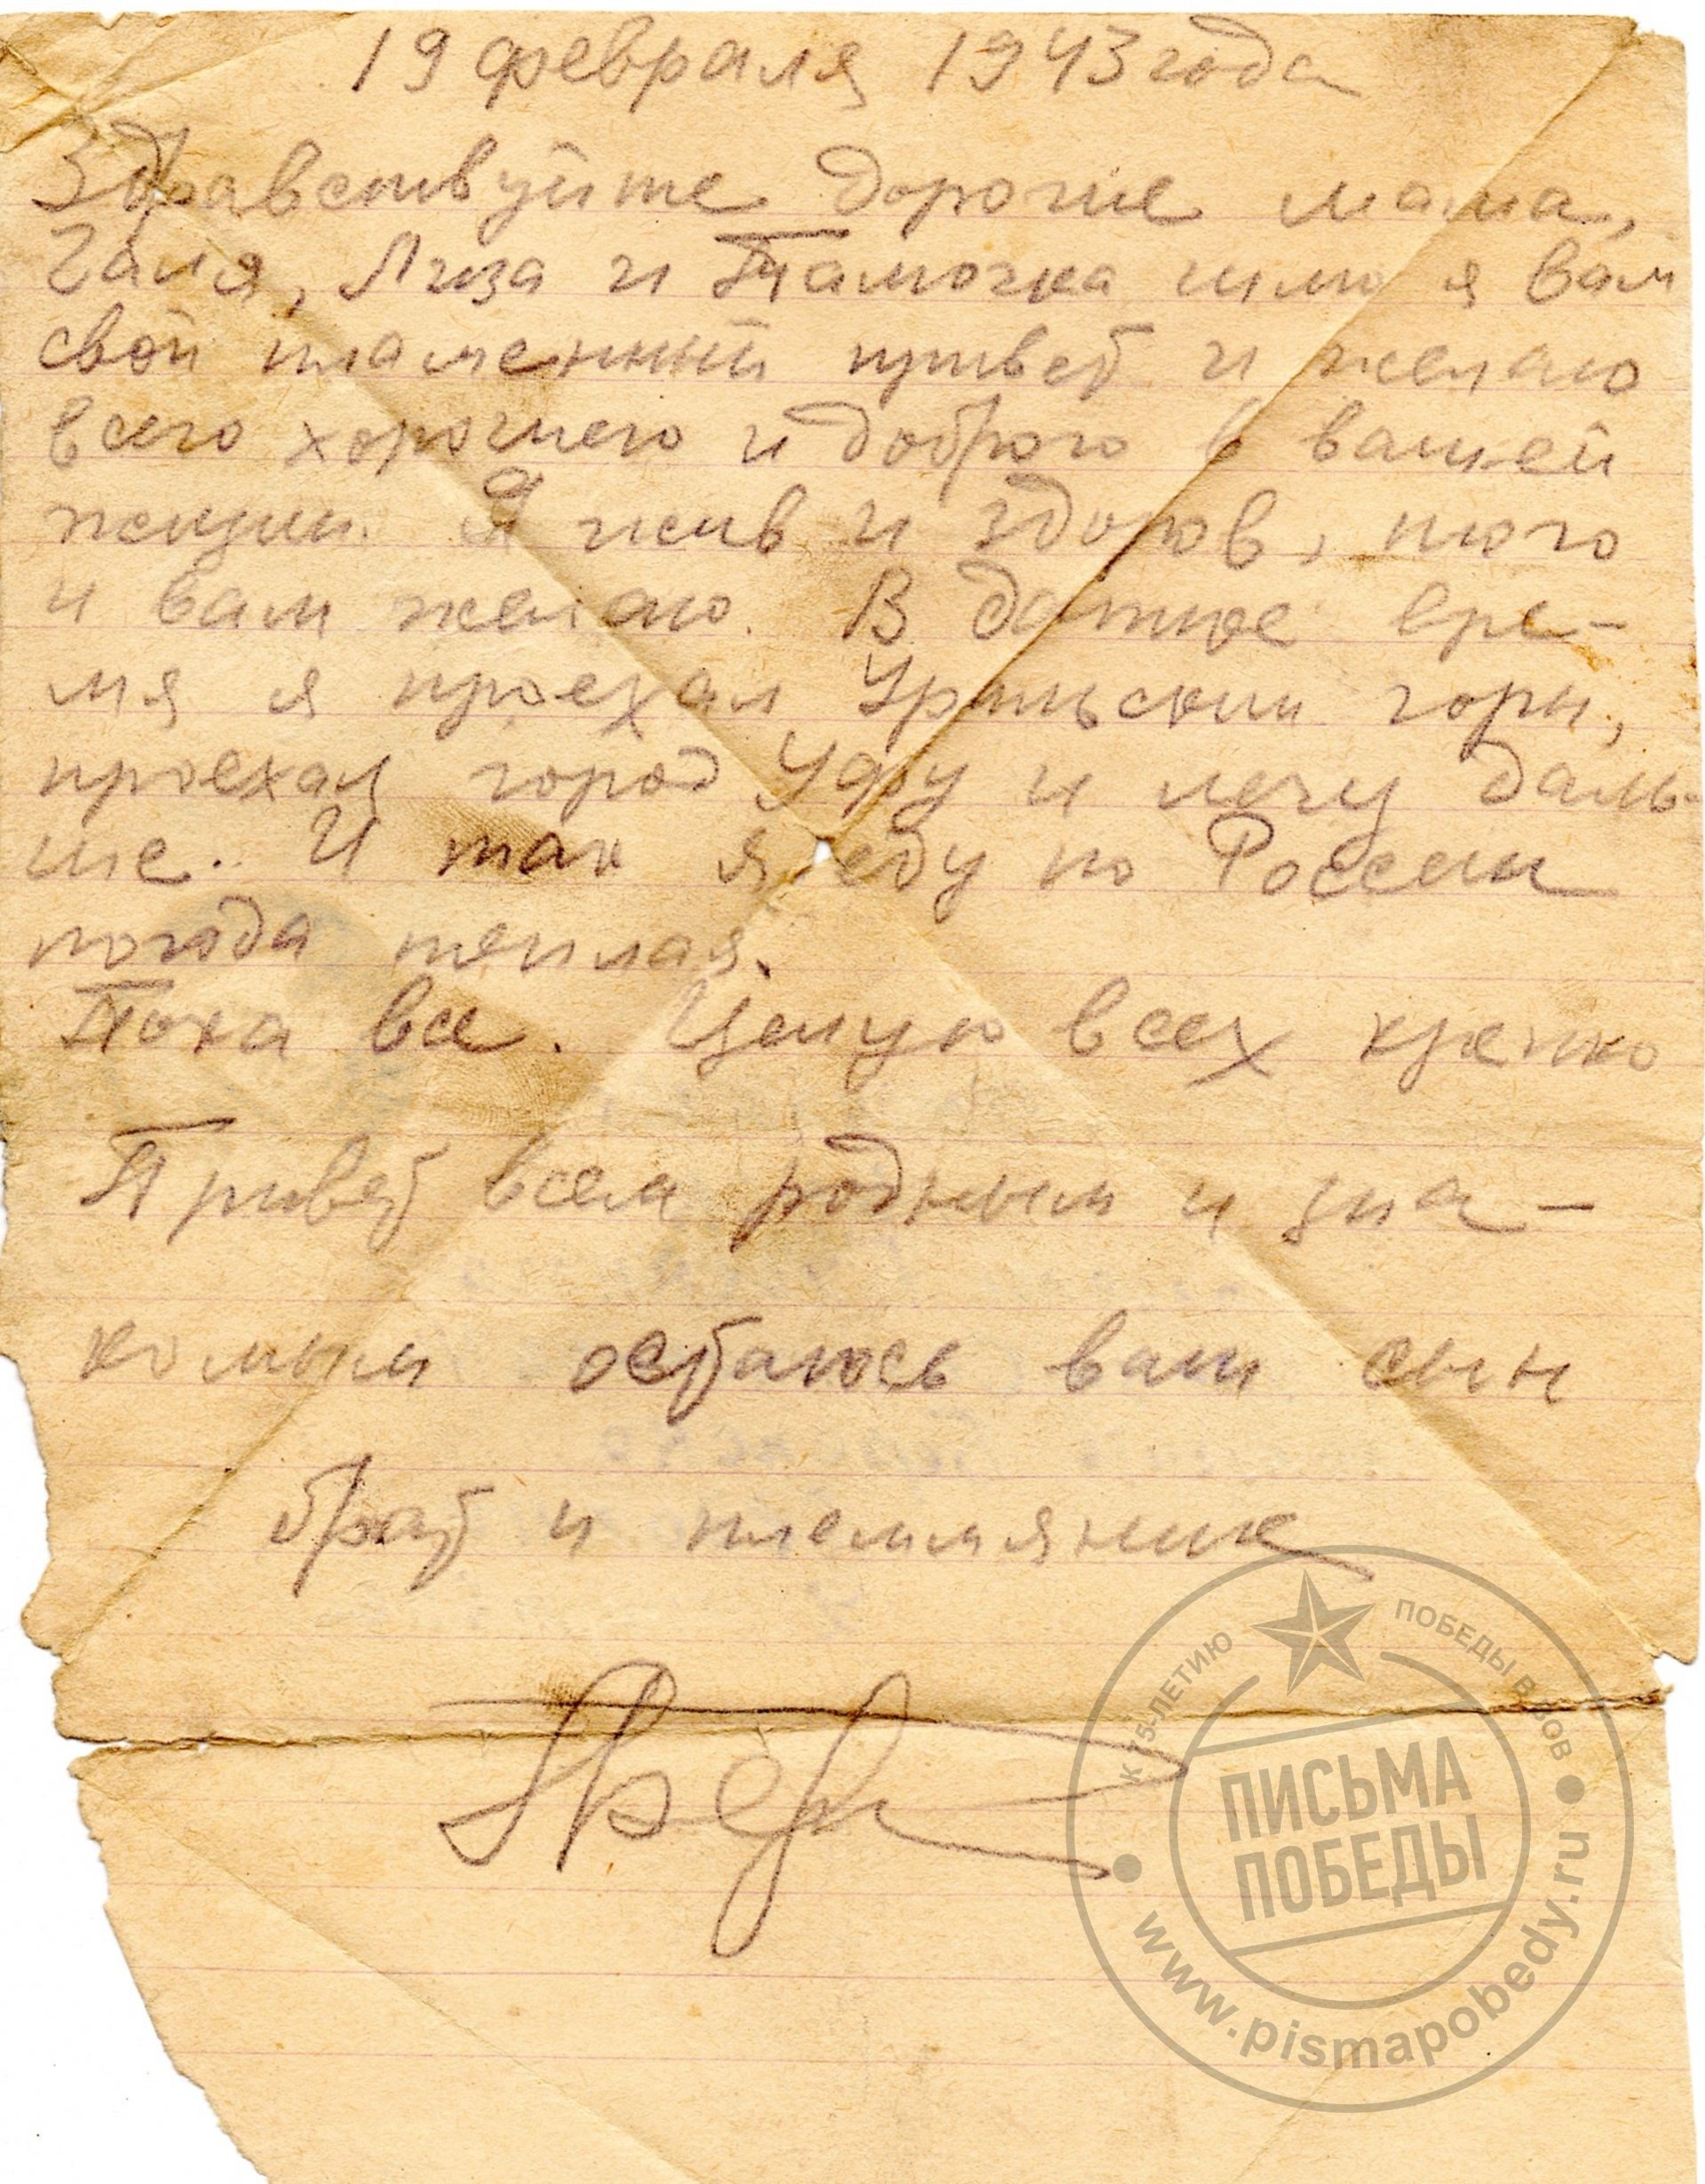 19 февраля 1943 года
Здравствуйте дорогие мама,
Галя, Лиза и Тамочка шлю я вам
свой пламенный привет и желаю
всего хорошего и доброго в вашей
жизни. Я жив и здоров, того
и вам желаю. В данное вре-
мя я проехал Уральскии горы,
проехал город Уфу и лечу даль-
ше. И так я еду по России
погода теплая.
Пока все. Целую всех крепко
Привет всем родным и зна-
комым остаюсь ваш сын
брат и племмяник
К 75-ЛЕТИЮ ПОБЕДЫ В ВОВ
ПИСЬМА
ПОБЕДЫ
www.pismapobedy.ru